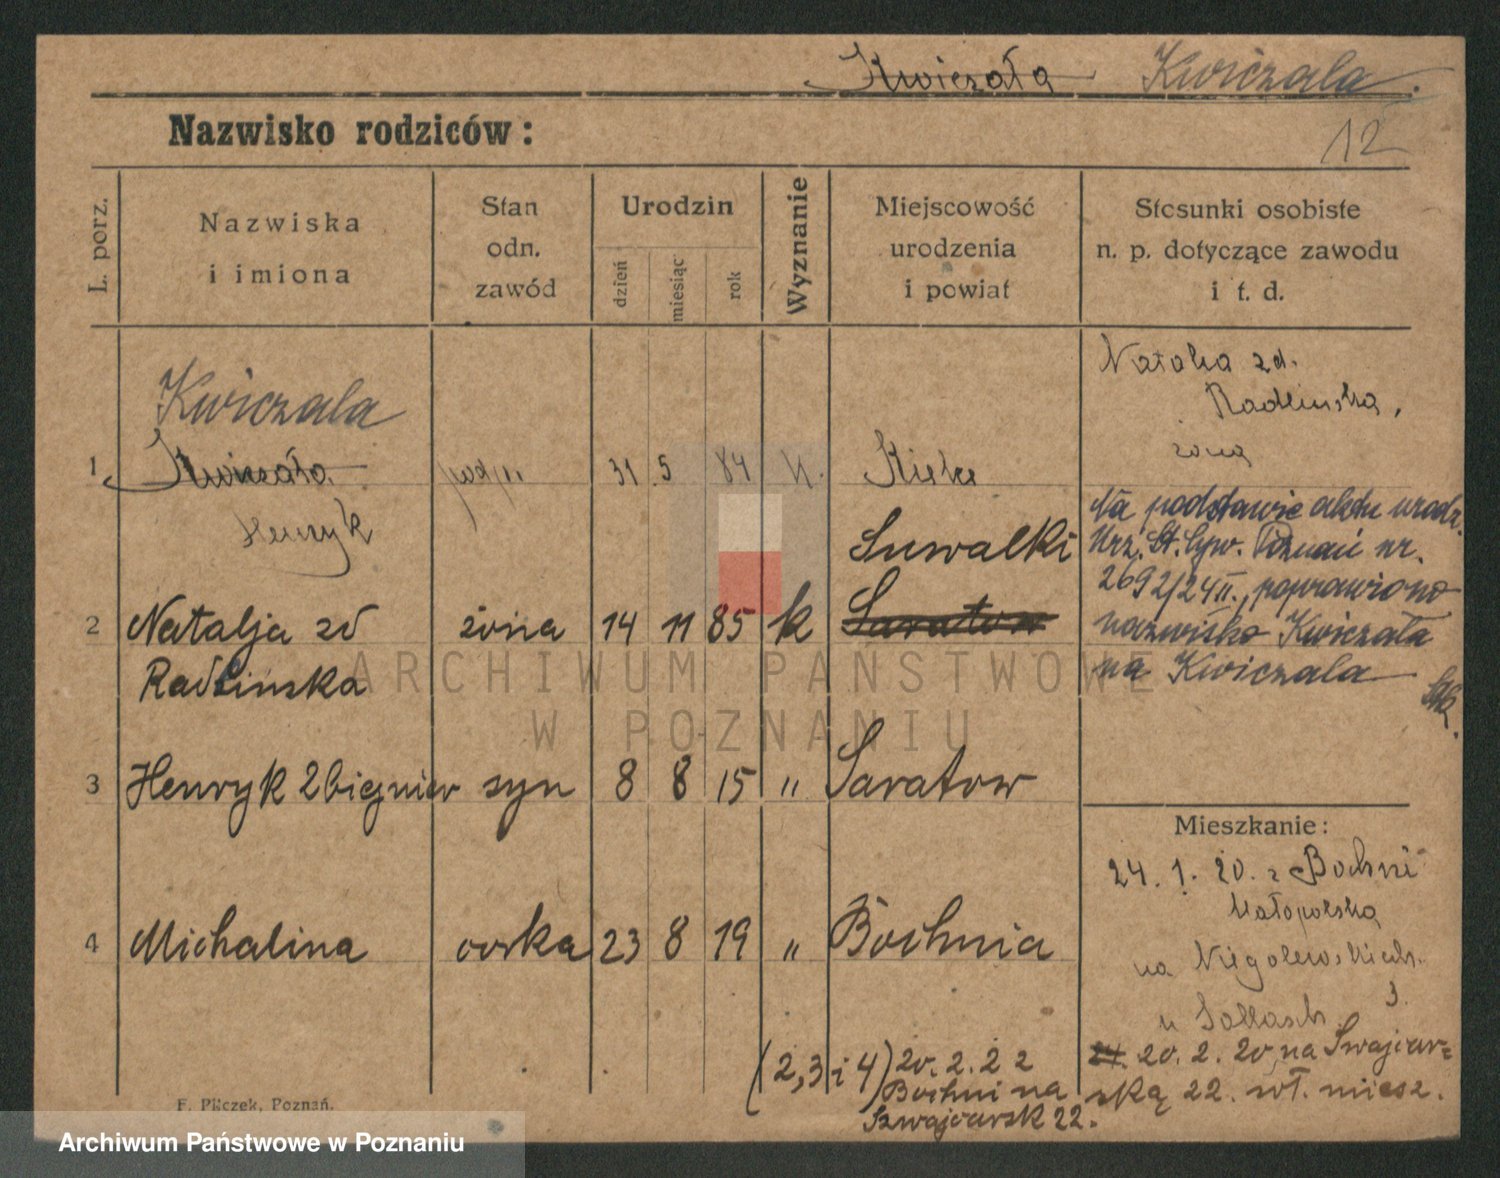 Kwiczała Kwiczala.
Nazwisko rodziców:
12
L. porz.
Nazwiska
i imiona
Stan
odn.
zawód
Urodzin
dzień
miesiąc
rok
Wyznanie
Miejscowość
urodzenia
i powiat
Stosunki osobiste
n. p. dotyczące zawodu
i t. d.
Kwiczala
1 Kwiczała 31 5 84 k.
Henryk
2 Natalja zd żona 14 11 85 k Saratow
Radlinska
Suwalki
3 Henryk Zbigniew syn 8 8 15 " Saratow
4 Michalina córka 23 8 19 " Bochnia
(2,3 i 4) 20.2.22
Bochni na
Szwajcarsk 22.
Natalia zd.
Radlinska,
żona
Na podstawie aktu urodz.
Urz. St. Cyw. Poznań nr.
2692/24 II., poprawiono
nazwisko Kwiczała
na Kwiczala
Mieszkanie:
24. 1. 20. z Bochni
Małopolska
na Niegolewskich
3.
u
24. 20. 2. 20 na Swajcar=
ską 22. wł. miesz.
F. Pilczek, Poznań.
ARCHIWUM PAŃSTWOWE
W POZNANIU
Archiwum Państwowe w Poznaniu